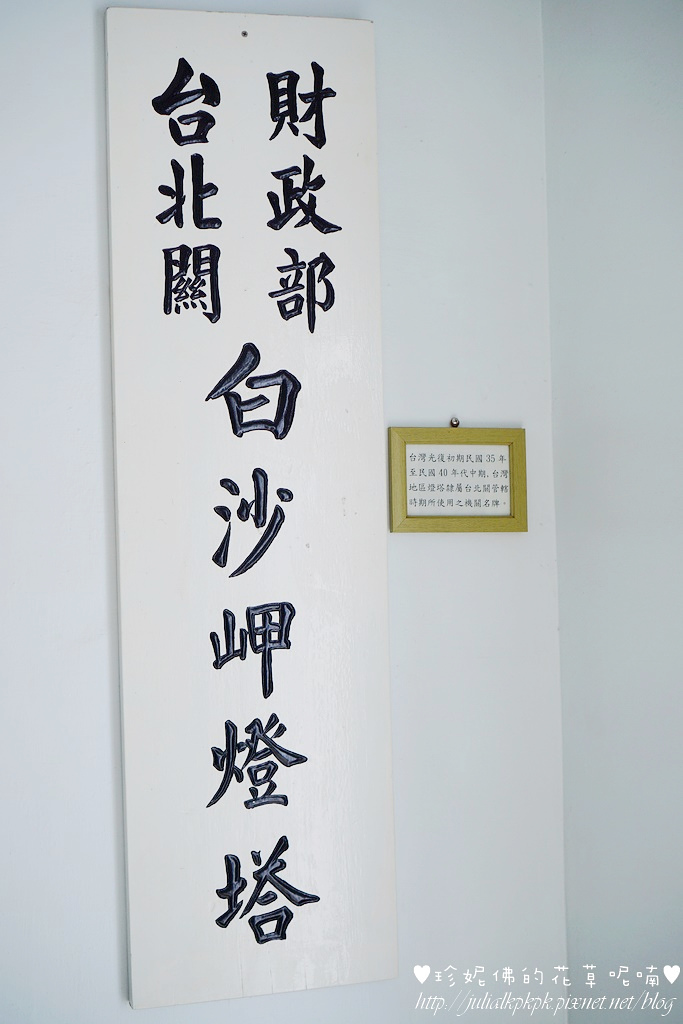 財政部
台北關
白沙岬燈塔
台灣光復初期民國35年
至民國40年代中期，台灣
地區燈塔隸屬台北關管轄
時期所使用之機關名牌。
♥珍妮佛的花草呢喃♥
http://julialkpkpk.pixnet.net/blog